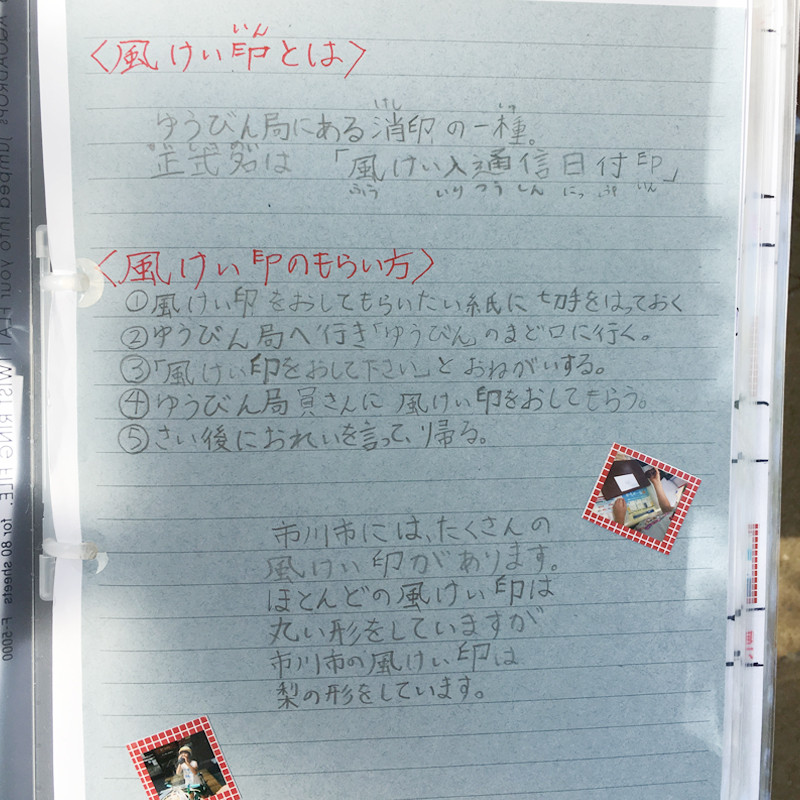 いん
〈風けい印とは〉
けし いっ
ゆうびん局にある消印の一種。
正式名は 「風けい入通信日付印」
ふう いり つう しん にっ いん
〈風けい印のもらい方〉
①風けい印をおしてもらいたい紙に切手をはっておく
②ゆうびん局へ行き「ゆうびん」のまど口に行く。
③「風けい印をおして下さい」とおねがいする。
④ゆうびん局員さんに風けい印をおしてもらう。
⑤さい後におれいを言って、帰る。
市川市には、たくさんの
風けい印があります。
ほとんどの風けい印は
丸い形をしていますが
市川市の風けい印は
梨の形をしています。
for 80 sheets F-5000